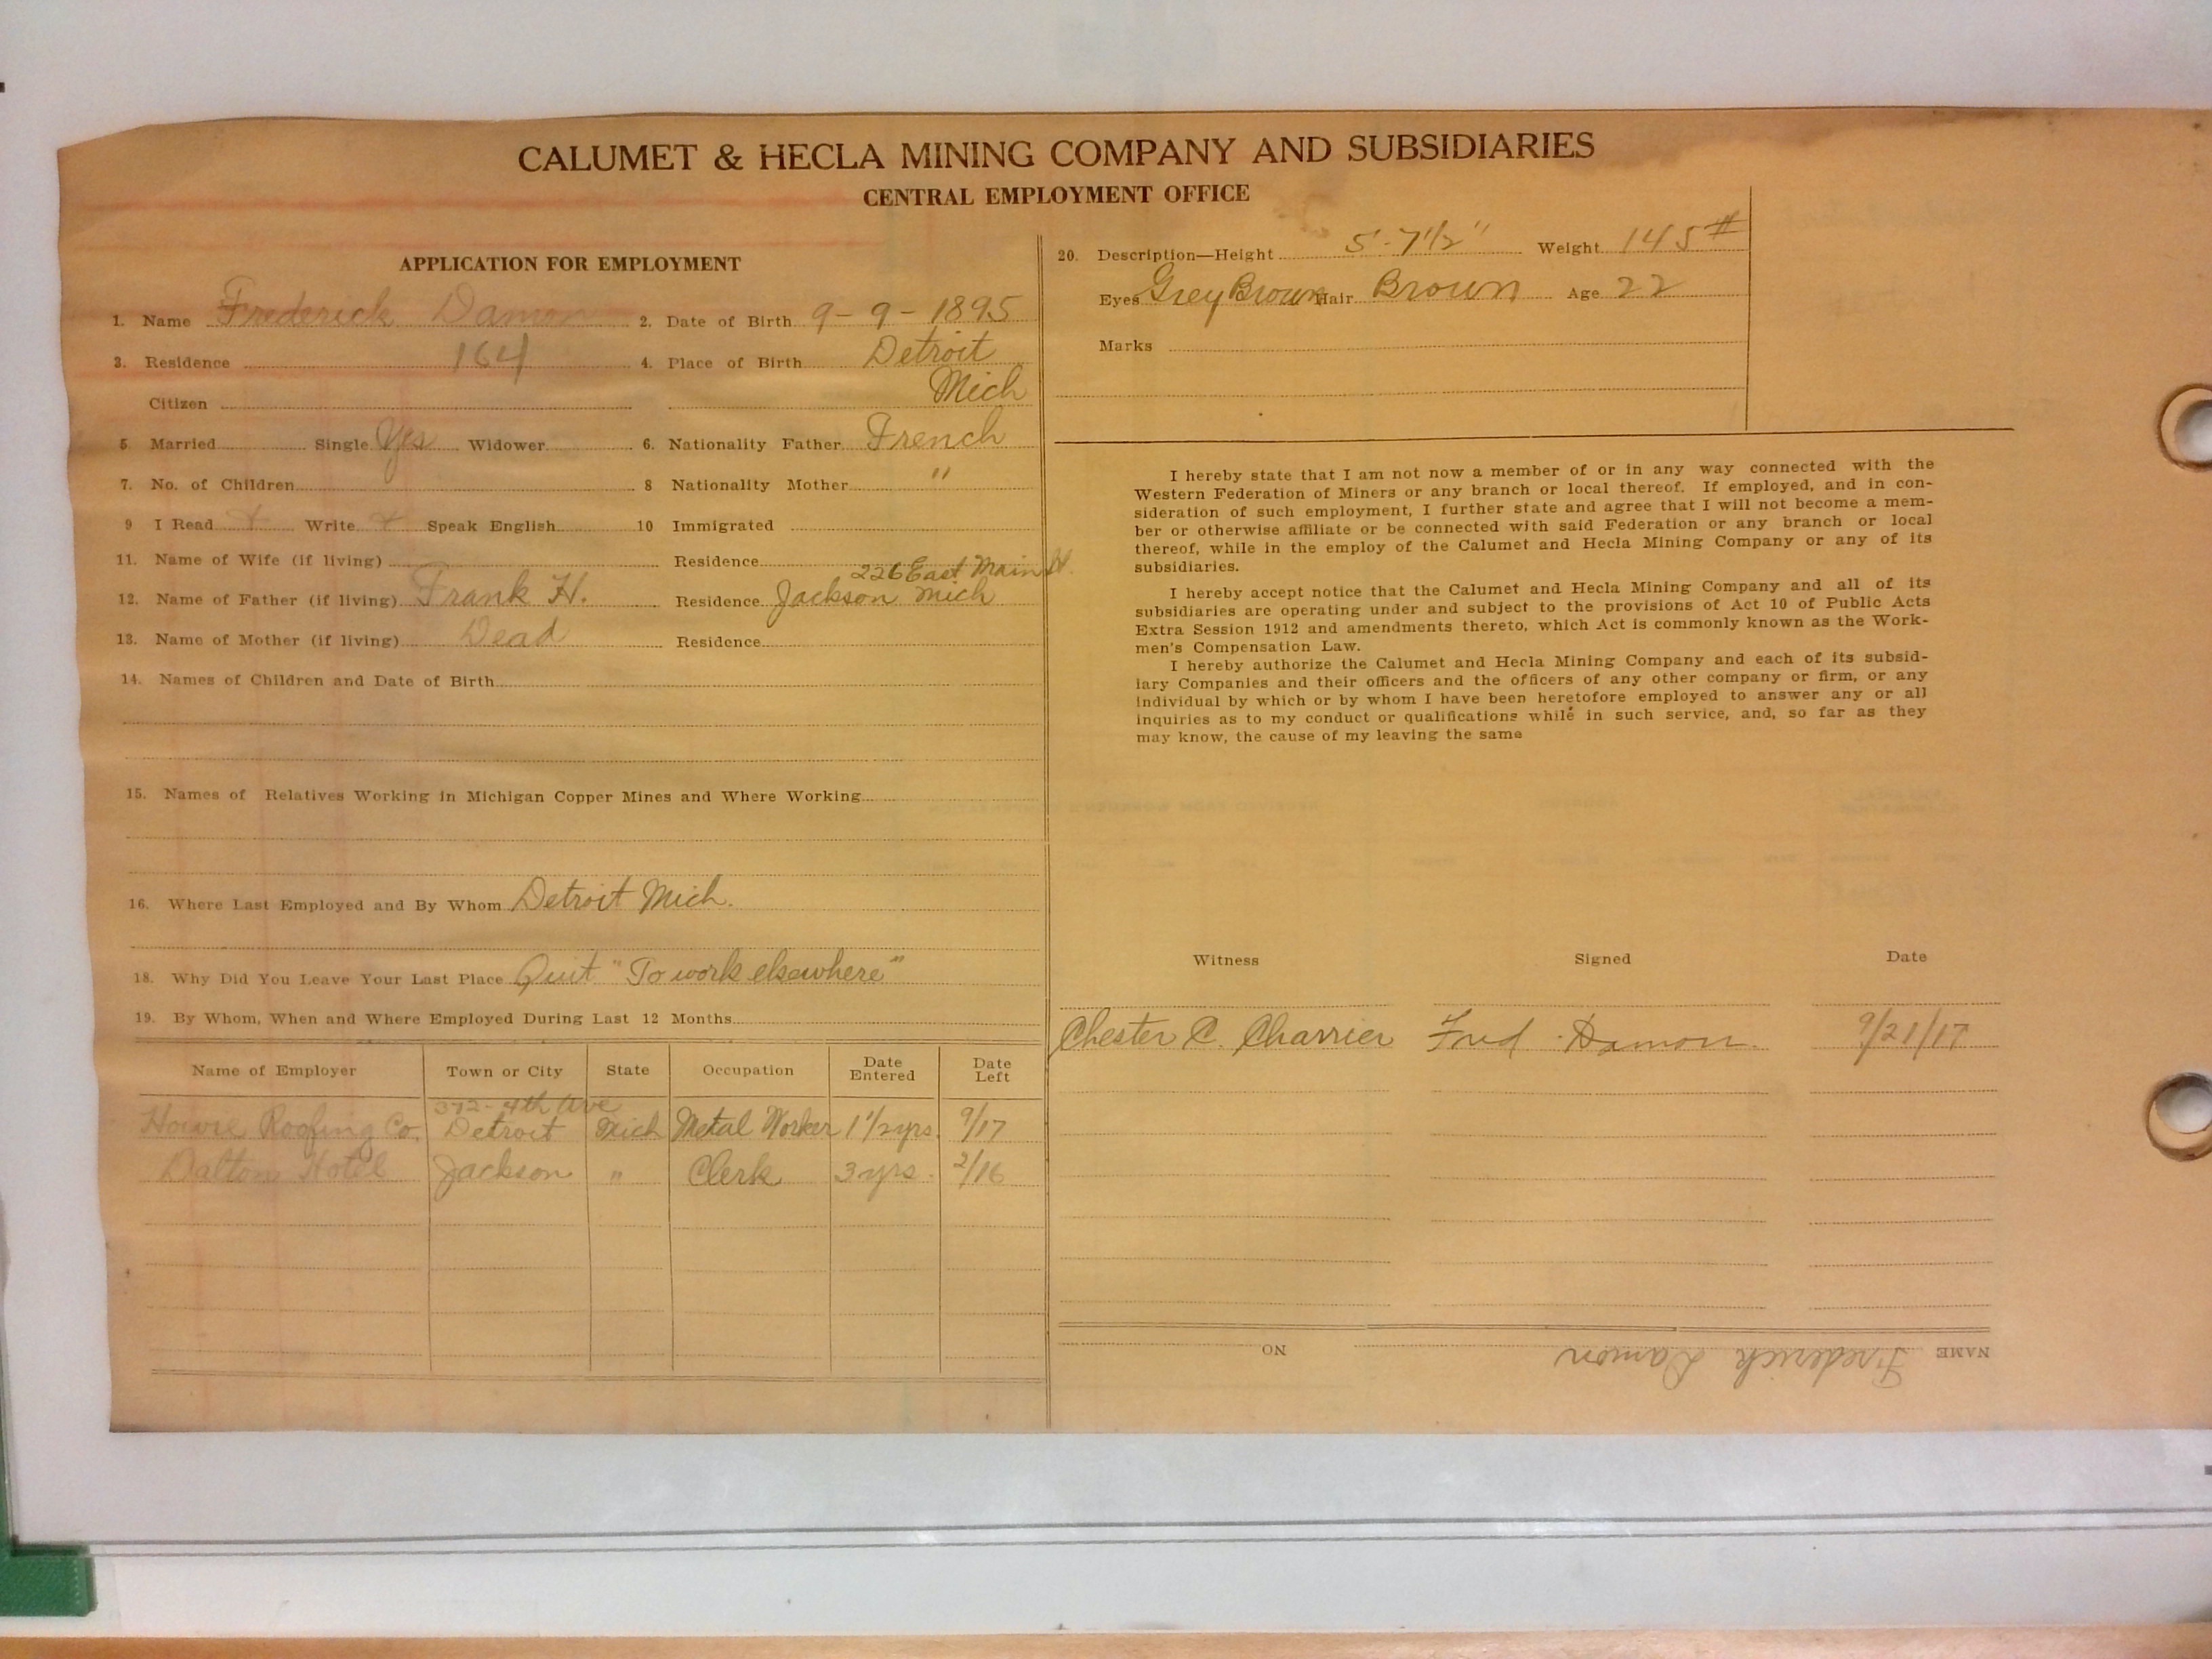 CALUMET & HECLA MINING COMPANY AND SUBSIDIARIES
CENTRAL EMPLOYMENT OFFICE
APPLICATION FOR EMPLOYMENT
1. Name Frederick Damon 2. Date of Birth 9-9-1895
3. Residence 164 4. Place of Birth Detroit
Citizen Mich
5 Married Single Yes Widower 6. Nationality Father French
7. No. of Children 8 Nationality Mother "
9 I Read + Write + Speak English 10 Immigrated
11. Name of Wife (if living) Residence
226 East Main St.
12. Name of Father (if living) Frank H. Residence Jackson Mich
13. Name of Mother (if living) Dead Residence
14. Names of Children and Date of Birth
15. Names of Relatives Working in Michigan Copper Mines and Where Working
16. Where Last Employed and By Whom Detroit Mich.
18. Why Did You Leave Your Last Place Quit "To work elsewhere"
19. By Whom, When and Where Employed During Last 12 Months
Name of Employer Town or City State Occupation Date Entered Date Left
372-4th Ave
Howie Roofing Co. Detroit Mich Metal Worker 1 1/2 yrs. 9/17
Dalton Hotel Jackson " Clerk 3 yrs. 2/16
20. Description—Height 5'-7 1/2" Weight 145#
Eyes Grey Brown Hair Brown Age 22
Marks
I hereby state that I am not now a member of or in any way connected with the
Western Federation of Miners or any branch or local thereof. If employed, and in con-
sideration of such employment, I further state and agree that I will not become a mem-
ber or otherwise affiliate or be connected with said Federation or any branch or local
thereof, while in the employ of the Calumet and Hecla Mining Company or any of its
subsidiaries.
I hereby accept notice that the Calumet and Hecla Mining Company and all of its
subsidiaries are operating under and subject to the provisions of Act 10 of Public Acts
Extra Session 1912 and amendments thereto, which Act is commonly known as the Work-
men's Compensation Law.
I hereby authorize the Calumet and Hecla Mining Company and each of its subsid-
iary Companies and their officers and the officers of any other company or firm, or any
individual by which or by whom I have been heretofore employed to answer any or all
inquiries as to my conduct or qualifications while in such service, and, so far as they
may know, the cause of my leaving the same
Witness Signed Date
Chester C. Charrier Fred Damon. 9/21/17
NAME Frederick Damon NO